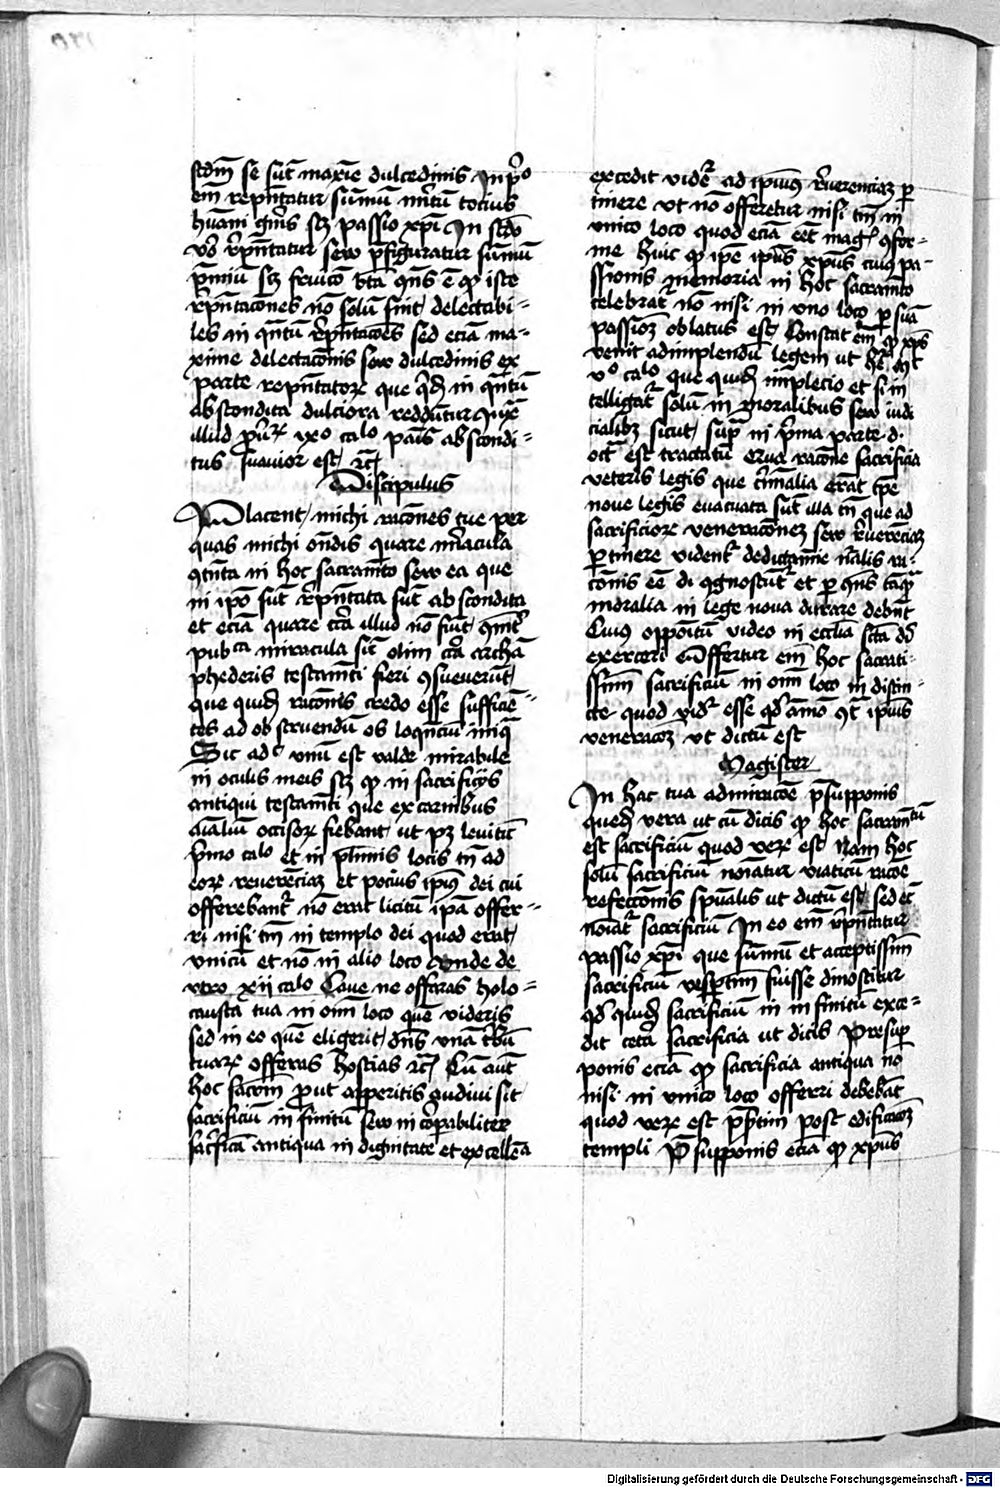 scdm se sūt maxīe dulcedinis In pͦo
em̄ rep̄ntatur sūmū mitū tocius
hūani gn̄is scz passio xp̄i In scdo
vͦo rp̄ntatur seu p̄figuratur sūmū
p̄miū scz fruicō bt̄a qn̄s ē qd iste
rp̄ntacōnes nō solū sint delectabi-
les in qn̄tū rp̄ntacōes sed eciā ma-
xime delectacōnis seu dulcedinis ex
parte rep̄ntatoꝝ que qd̄ in qn̄tū
abscondita dulciora reddūtur iuxͣ
illud ixͦ calͦ panis abscondi-
tus suauior est ꝛc̄
Discipulus
Placent michi racōnes tue per
quas michi on̄dis quare miracula
9tn̄ta in hoc sacramn̄to seu ea que
in ip̄o sūt rp̄ntata sūt abscondita
et eciā quare cͥca illud nō fiūt
pubca miracula sic̄ olim cͥca archā
phederis testamn̄ti fieri 9sueuerūt
que quidē racōnis credo esse sufficiē-
tes ad obstruendū os loqn̄ciū iniq̄
Sic adc vnū est valde mirabile
in oculis meis scz qd in sacrificijs
antiqui testamn̄ti que ex carnibus
aīaliū occisoꝝ fiebant ut pz leuitic̄
pͥmo calͦ et in plͥimis locis tn̄ ad
eoꝝ reuerēciaꝫ et pocius ip̄ius dei cui
offerebantͬ nō erat licitū ip̄a offer-
ri nisi tm̄ in templo dei quod erat
vnicū et nō in alio loco vnde de
utro xij calo Caue ne offeras holo-
causta tua in om̄i loco quē videris
sed in eo quē eligerit dn̄s vnā tͥbū
tuaꝝ offeras hostias ꝛc̄ Cū aūt
hoc sacrm̄ put apperitis audiui sit
sacrificiū infinitū seu incōpabiliter
sacͥficia antiqua in dignitate et excellēa
excedit videtͬ ad ip̄ius rͥuerenciaꝫ p̱
tinere vt nō offeretur nisi tm̄ in
vnico loco quod eciā eēt magͥ 9for-
me huic qd ip̄e ip̄us xp̄us cuiꝰ pa-
ssionis memoria in hoc sacramn̄to
celebratͬ nō nisi in vno loco p̱ suā
passioꝫ oblatus est Constat em̄ qd xp̄s
venit adimplendū legem ut hr̄
vͦ calͦ que quidē implecio et si in
telligatͬ solū in moralibus seu iudi
cialibꝫ sicut supͣ in pͥma parte d.
oc̄t est tractatū Qua racōne sacrificia
veteris legis que cͥmōnalia erāt tp̄e
noue legis euacuata sūt illa tn̄ que ad
sacrificioꝝ veneracōneꝫ seu rͥuerēciaꝫ
p̱tinere videntͬ de dictamīe nͣalis ra-
cōnis eē di 9gnoscūtͬ et p̱ 9ns tāqͣ
moralia in lege noua durare debn̄t
Cuius oppoītū video in ecclīa sc̄tā dei
exerceri Offertur em̄ hoc sacrati-
ssimū sacrificiū in om̄i loco indistin-
cte quod vidͬ esse qd̄ām 9tͣ ip̄ius
veneracōꝫ vt dictū est
Magister
In hac tua admiracōe p̄supponis
quedā vera ut cū dicis qd hoc sacramn̄tū
est sacrificiū quod veꝝ est Nam hoc
solū sacrificiū noīatur viaticū racōe
refeccōnis spūalis ut dictū est sed ec̄
noīatͬ sacrificiū In eo em̄ rp̄ntatur
passio xp̄i que sūmū et acceptissim̄
sacrificiū vesp̱tinū fuisse dinoscitur
qd̄ quidē sacrificiū in infinitū exce-
dit cet̄a sacrificia ut dicis Presup
ponis eciā qd sacrificia antiqua nō
nisi in vnico loco offerri debebāt
quod veꝝ est p̱p̄tim post edificacōꝫ
templi P̄supponis eciā qd xp̄us
Digitalisierung gefördert durch die Deutsche Forschungsgemeinschaft - DFG